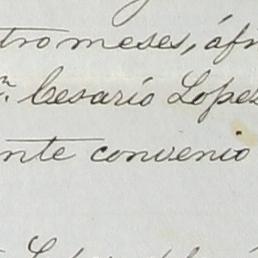 tro meses, áfr
n. Cesario Lopez
nte convenio